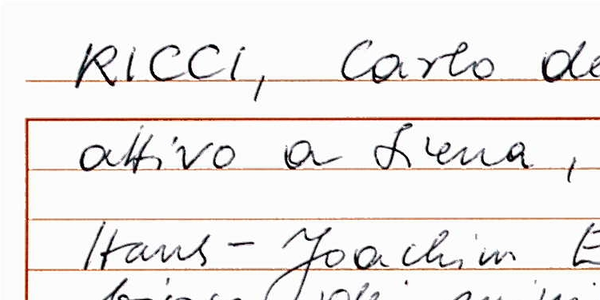 RICCI, Carlo de
attivo a Siena,
Hans-Joachim E